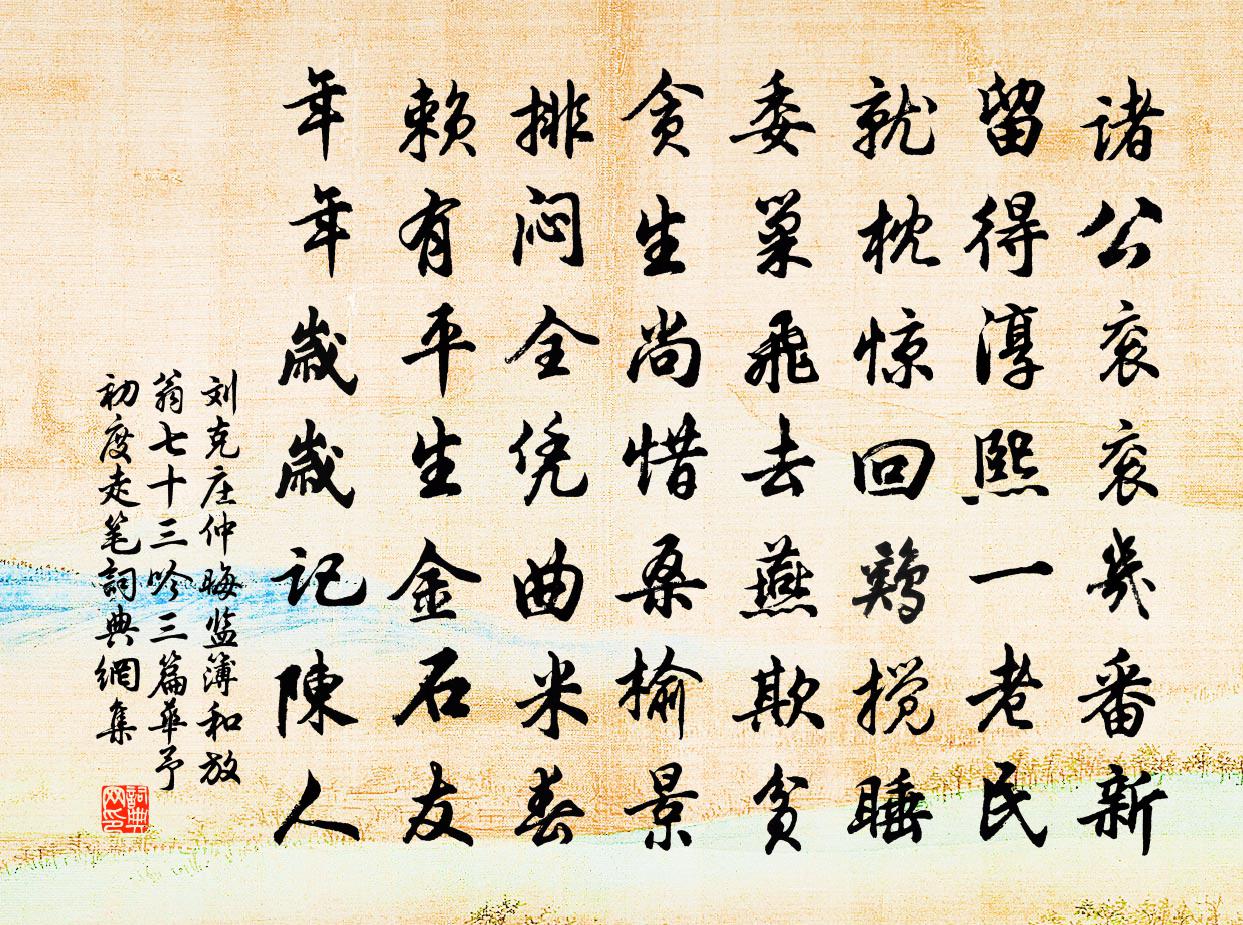 诸公衮衮几番新
留得淳熙一老民
就枕惊回鸡搅睡
委巢飞去燕欺贫
贪生尚惜桑榆景
排闷全凭曲米春
赖有平生金石友
年年歳歳记陳人
刘克庄仲晦监簿和放
翁七十三吟三篇华予
初度走笔詞典網集
詞典网印